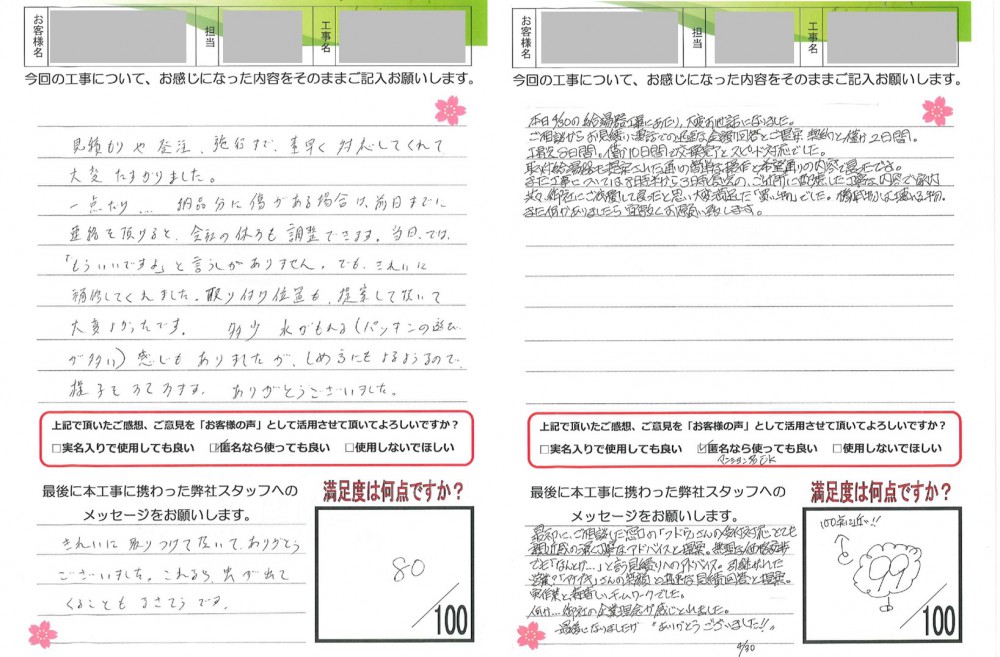 お客様名
担当
工事名
今回の工事について、お感じになった内容をそのままご記入お願いします。
見積もりや発注、施行まで、素早く対応してくれて
大変たすかりました。
一点だけ... 納品分に傷がある場合は、前日までに
連絡を頂けると、会社の休みも調整できます。当日では、
「もういいですよ」と言うしかありません。でも、きれいに
補修してくれました。取り付け位置も、提案して頂いて
大変よかったです。 多少 水がもれる(パッキンの遊び
が多い)感じもありましたが、しめ方にもよるようなので、
様子をみてみます。 ありがとうございました。
上記で頂いたご感想、ご意見を「お客様の声」として活用させて頂いてよろしいですか?
□実名入りで使用しても良い ☑匿名なら使っても良い □使用しないでほしい
最後に本工事に携わった弊社スタッフへの
メッセージをお願いします。
きれいに取りつけて頂いて、ありがとう
ございました。これなら、虫が出て
くることもなさそうです。
満足度は何点ですか?
80
/100
お客様名
担当
工事名
今回の工事について、お感じになった内容をそのままご記入お願いします。
本日4/30の給湯器工事にあたり、大変お世話になりました。
ご相談からお見積り、電話での迅速な金額回答とご提案、契約と僅か2日間。
工事迄8日間。僅か10日間で交換完了とスピード対応でした。
取付給湯器も提案された通りの簡単な操作と希望通りの内容で良かったです。
また工事については
また何かありましたら宜敷くお願い致します。
上記で頂いたご感想、ご意見を「お客様の声」として活用させて頂いてよろしいですか?
□実名入りで使用しても良い ☑匿名なら使っても良い □使用しないでほしい
マンション名OK
最後に本工事に携わった弊社スタッフへの
メッセージをお願いします。
最初にご相談した窓口の「クドウ」さんの
親近感の湧く丁寧なアドバイスと提案。無理な価格交渉
でも「なんとか...」と言う見積りへのアドバイス。
さんの笑顔と迅速な見積回答と提案。
チームワークでした。
御社の企業理念が感じとれました。
最後になりましたが「ありがとうございました!!」
4/30
満足度は何点ですか?
100点に近い!!
99
/100